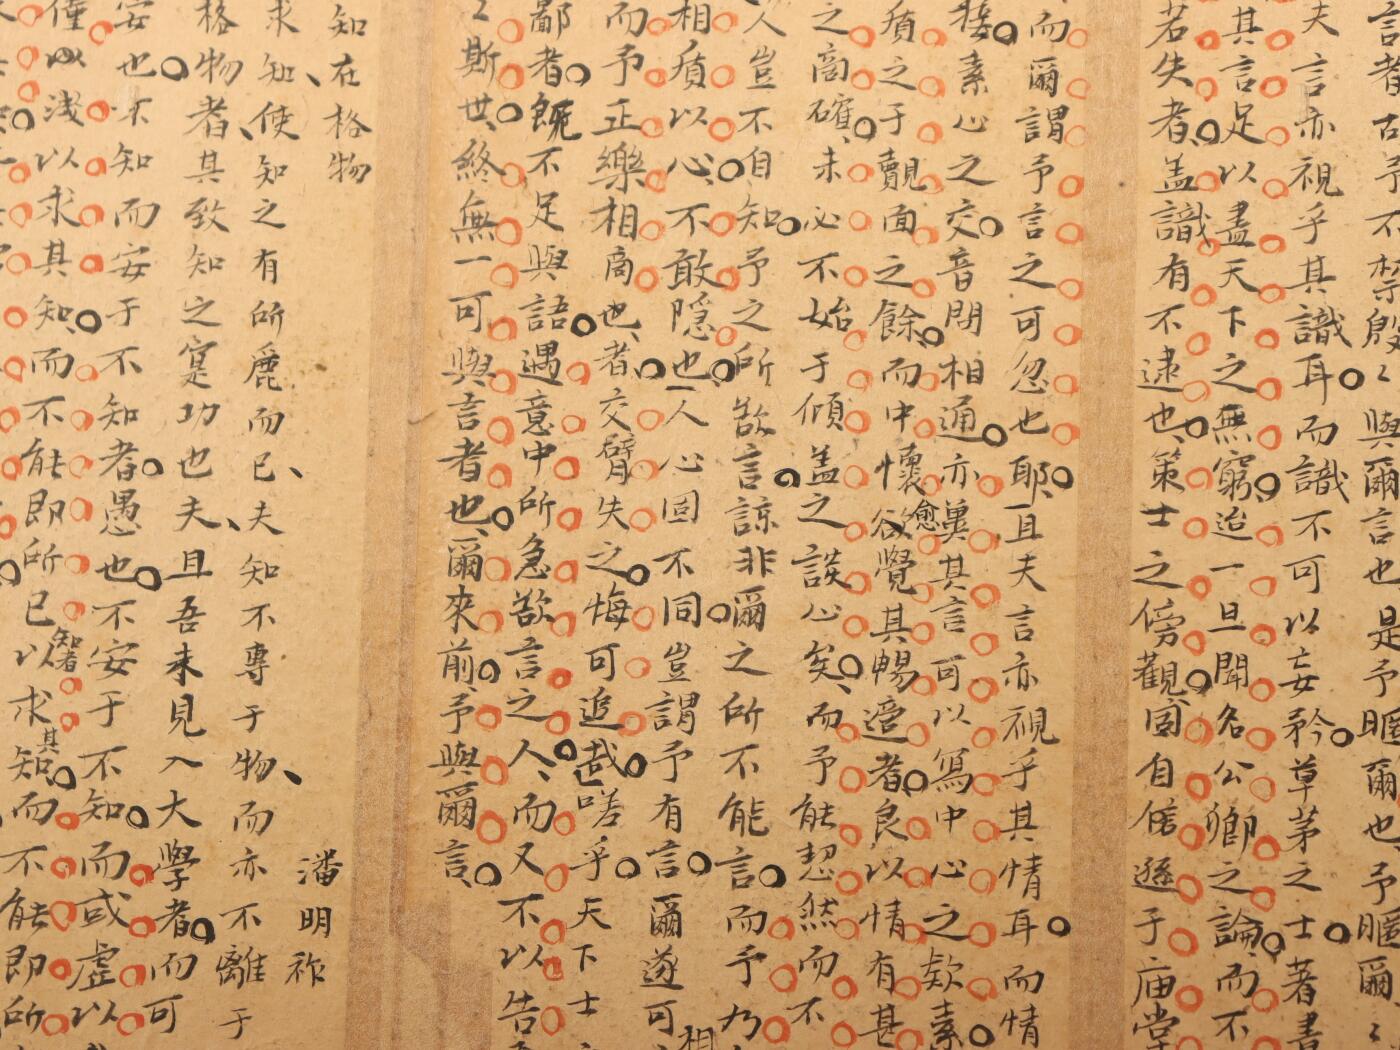 言者古予不禁殷〻與爾言也是予暱爾也予暱爾〻
夫言亦視乎其識耳而識不可以妄矜草茅之士著書
其言足以盡天下之無窮迨一旦聞名公卿之論而不
若失者盖識有不逮也策士之傍觀固自信遜于庙堂
而爾謂予言之可忽也耶且夫言亦視乎其情耳而情
接素心之交音問相通亦冀其言可以寫中心之欵素
瘄之于覿面之餘而中懷欲愈覺其暢適者良以情有甚
之商確未必不始于傾盖之談心矣而予能恝然而不
人豈不自知予之所欲言諒非爾之所不能言而予乃
相質以心不敢隱也人心固不同豈謂予有言爾遂可
而予正樂相商也者交臂失之悔可追哉嗟乎天下士
鄙者既不足與語遇意中所急欲言之人而又不以告
〻斯世終無一可與言者也爾來前予與爾言
知在格物
潘明祚
求知使知之有所麗而已夫知不專于物而亦不離于
格物者其致知之寔功也夫且吾未見入大學者而可
安也不知而安于不知者愚也不安于不知而或虛以
僅以淺以求其知而不能即所已知者以求其知而不能即所